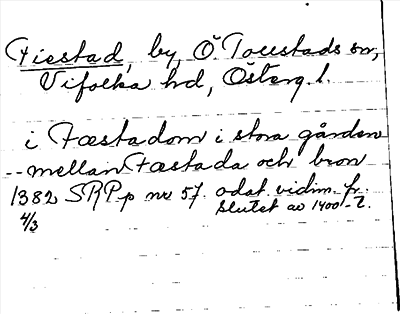 Fiestad, by, Ö. Toustads sn,
Vifolka hd, Österg. l.
i Fæstadom i stora gården
-- mellan Fæstada och bron
1382 SRPp nr 57. odat. vidim. fr.
4/3 slutet av 1400-t.